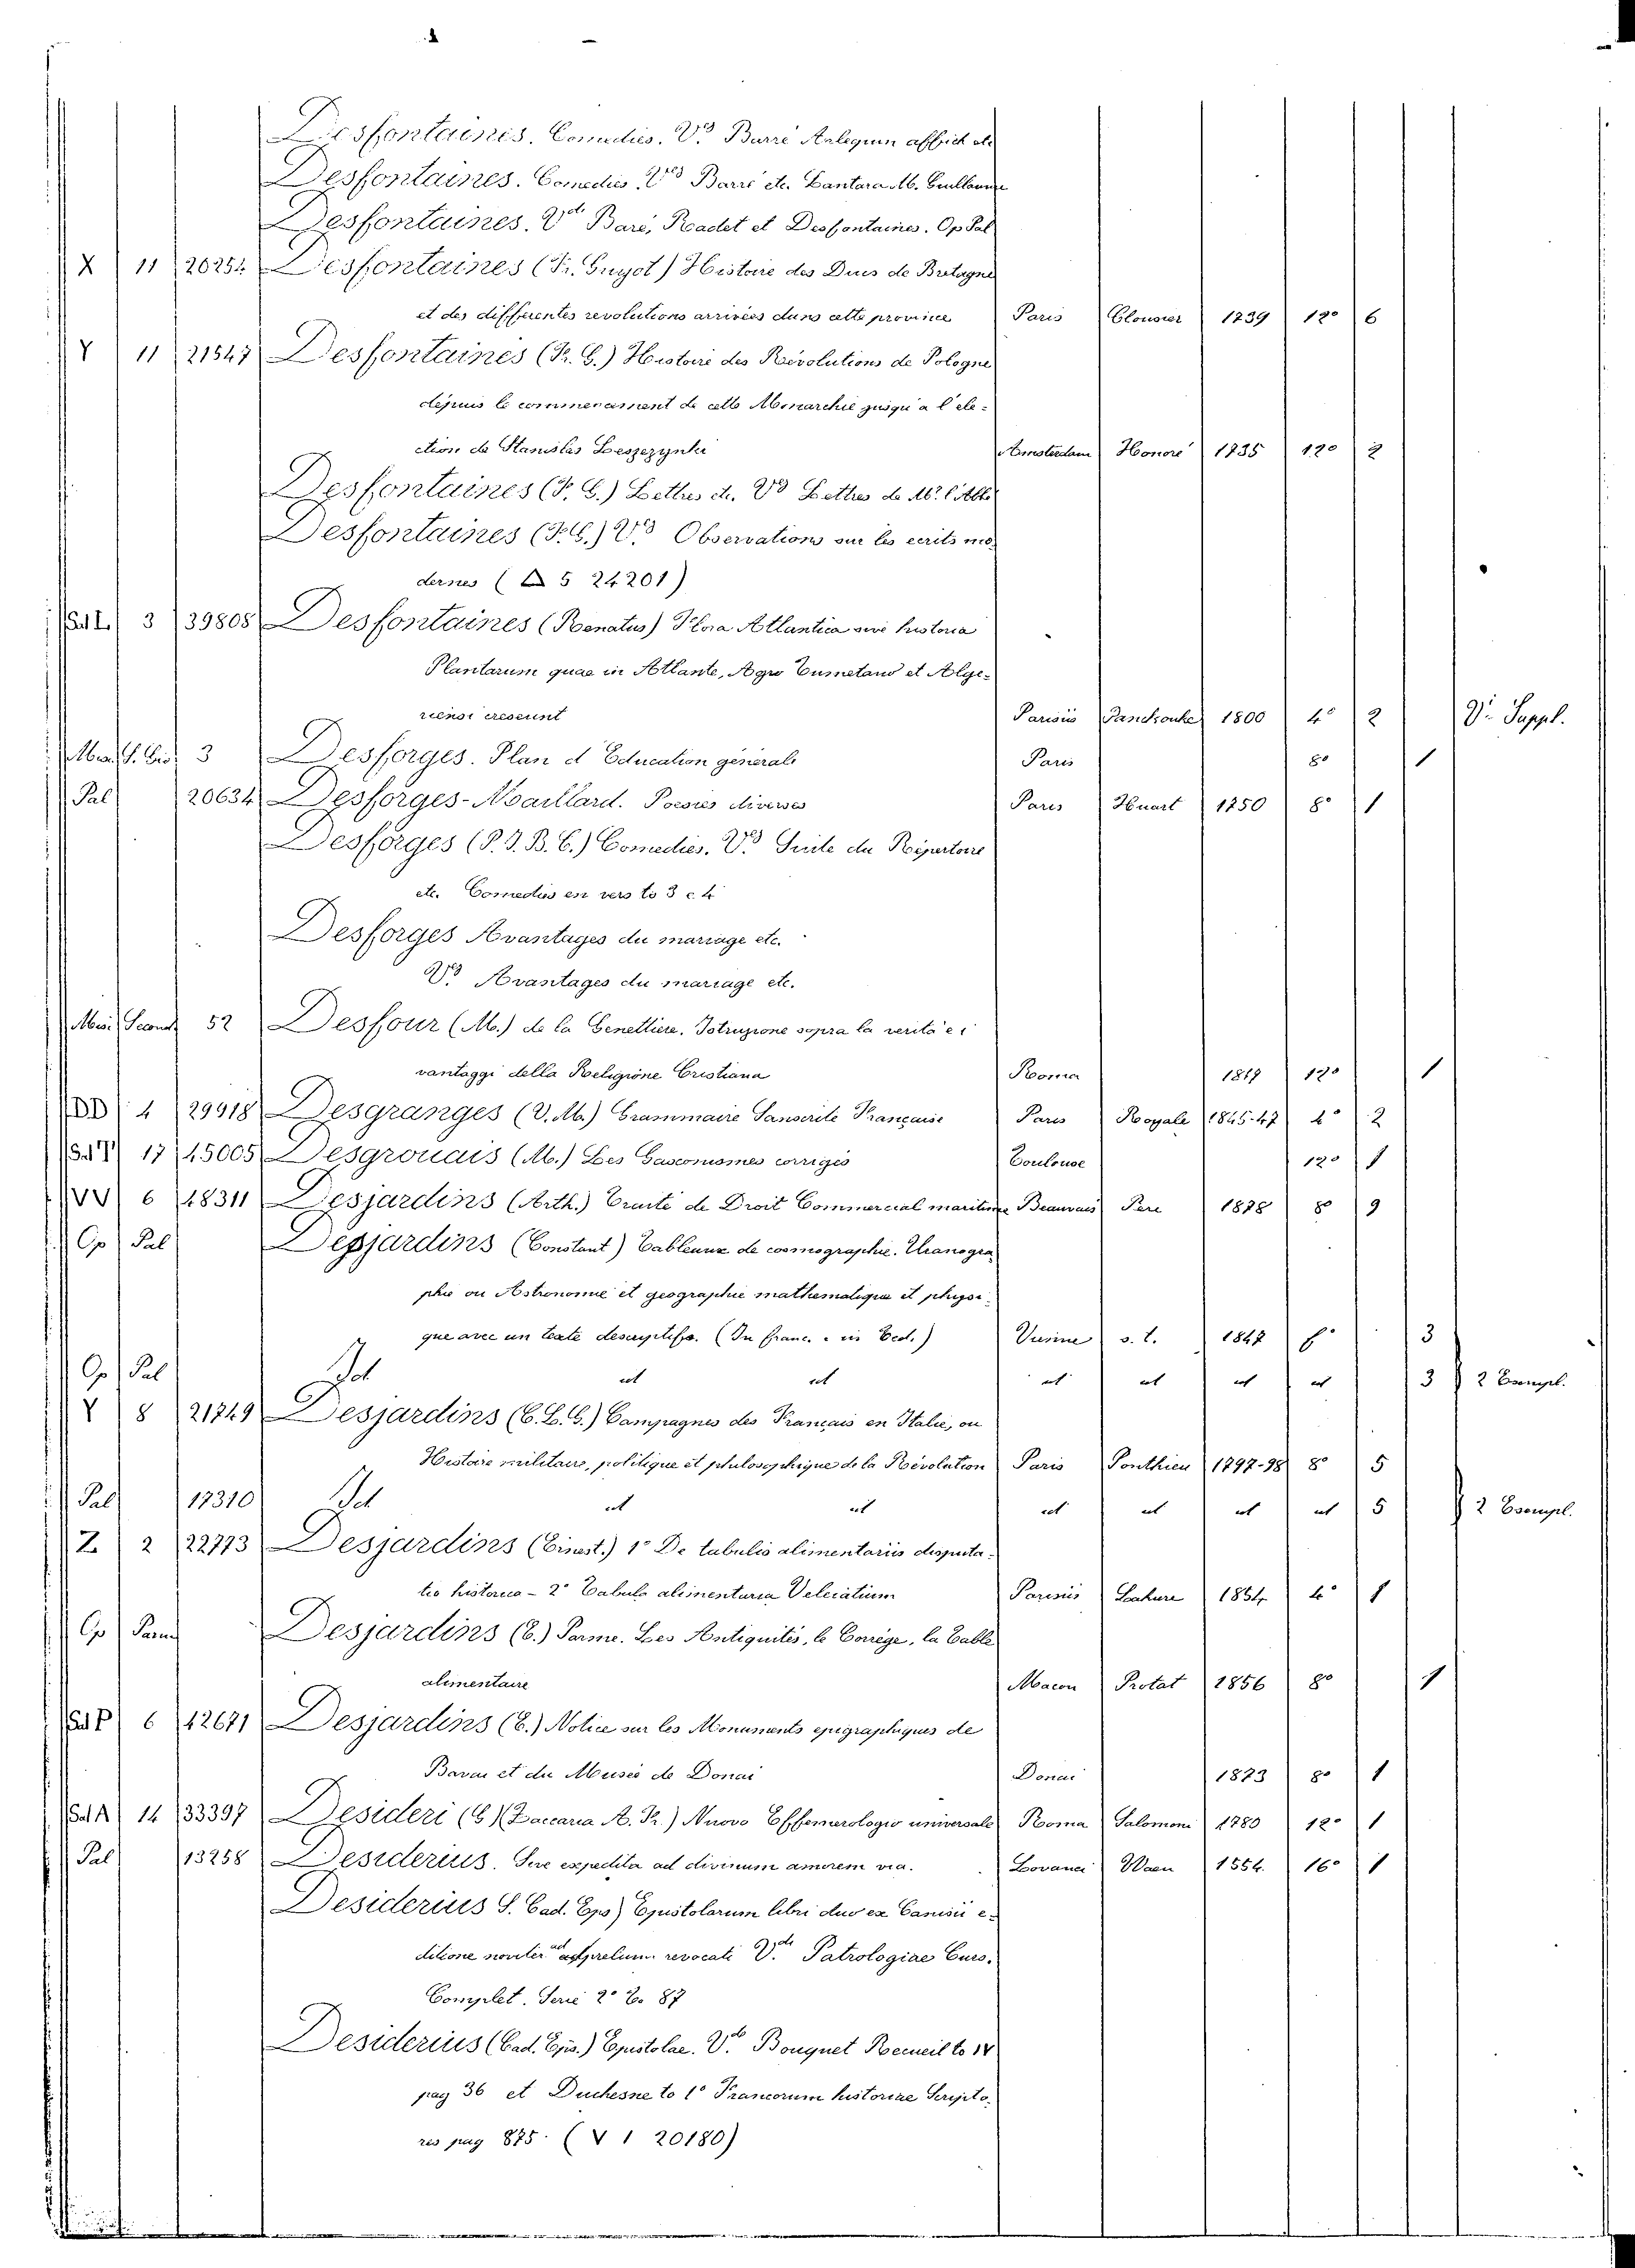 Desfontaines. Comedies. V.i Barré Arlequin affich etc
Desfontaines. Comedies V.i Barré etc. Cantara M. Guillaume
Desfontaines. V.di Baré, Radet et Desfontaines. Op Pal
X 11 20254 Desfontaines (Fr. Guyot) Histoire des Ducs de Bretagne
et des differentes revolutions arrivées dans cette province Paris Clousier 1739 12° 6
Y 11 21547 Desfontaines (P. G.) Histoire des Révolutions de Pologne
depuis le commencement de cette Monarchie jusqu'a l'ele-
ction de Stanislas Leszezynki Amsterdam Honoré 1735 12° 2
Desfontaines (P. G.) Lettres etc. V.i Lettres de Mr. l'Abbé
Desfontaines (P. G.) V.i Observations sur les ecrits mo-
dernes ( 5 24201)
Sal L. 3 39808 Desfontaines (Renatus) Flora Atlantica sive historia
Plantarum quae in Atlante, Agro Tunetano et Alge-
riensi crescunt Parisiis Panckouke 1800 4° 2 V. Suppl.
3 Desforges. Plan d'Education générale Paris 8° 1
Pal 20634 Desforges-Maillard. Poesies diverses Paris Huart 1750 8° 1
Desforges (P. J. B. C.) Comedies. V.i Suite du Répertoire
etc. Comedies en vers to 3 e 4
Desforges Avantages du mariage etc.
V.i Avantages du mariage etc.
Misc. Second 52 Desfour (M.) de la Genettiere. Istruzione sopra la verità e i
vantaggi della Religione Cristiana Roma 1817 12° 1
DD 4 29918 Desgranges (V. M.) Grammaire Sanscrite Française Paris Royale 1845-47 4° 2
Sal T 17 45005 Desgrouais (M.) Les Gasconismes corrigés Toulouse 12° 1
VV 6 48311 Desjardins (Arth.) Traité de Droit Commercial maritime Beauvais Pere 1878 8° 9
Op Pal Desjardins (Constant) Tableaux de cosmographie. Uranogra
phie ou Astronomie et geographie mathematique et physi-
que avec un texte descriptifs. (In franc. e in Ted.) Vienne s. t. 1847 f° 3
Op Pal Id id id id id id id 3 2 Exempl.
Y 8 21749 Desjardins (C. L. G.) Campagnes des Français en Italie, ou
Histoire militaire, politique et philosophique de la Révolution Paris Ponthieu 1797-98 8° 5
Pal 17310 Id id id id id id id 5 2 Exempl.
Z 2 22773 Desjardins (Ernest.) 1° De tabulis alimentariis disputa-
tio historica - 2° Tabula alimentaria Veleiatium Parisiis Lahure 1854 4° 1
Op Parm Desjardins (E.) Parme. Les Antiquités, le Corrège, la Table
alimentaire Macon Protat 1856 8° 1
Sal P 6 42671 Desjardins (E.) Notice sur les Monuments epigraphiques de
Bavai et du Museé de Douai Douai 1873 8° 1
Sal A 14 33397 Desideri (G) (Zaccaria A. Fr.) Nuovo Effemerologio universale Roma Salomoni 1780 12° 1
Pal 13258 Desiderius. Sive expedita ad divinum amorem via. Lovanii Waen 1554. 16° 1
Desiderius S. Cad. Eps) Epistolarum libri duo ex Canisii e-
ditione noviter ad prelum revocati V.di Patrologiae Curs.
Complet. Serie 2° To 87
Desiderius (Cad. Eps.) Epistolae. V.i Bouquet Recueil to IV
pag 36 et Duchesne to 1° Francorum historiae Scripto-
res pag 875. (V 1 20180)